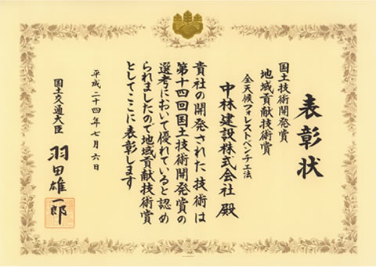 表彰状
国土技術開発賞
地域貢献技術賞
全天候フォレストベンチ工法
中林建設株式会社 殿
貴社の開発された技術は
第十四回国土技術開発賞の
選考において優れていると認め
られましたので地域貢献技術賞
としてここに表彰します
平成二十四年七月六日
国土交通大臣 羽田雄一郎